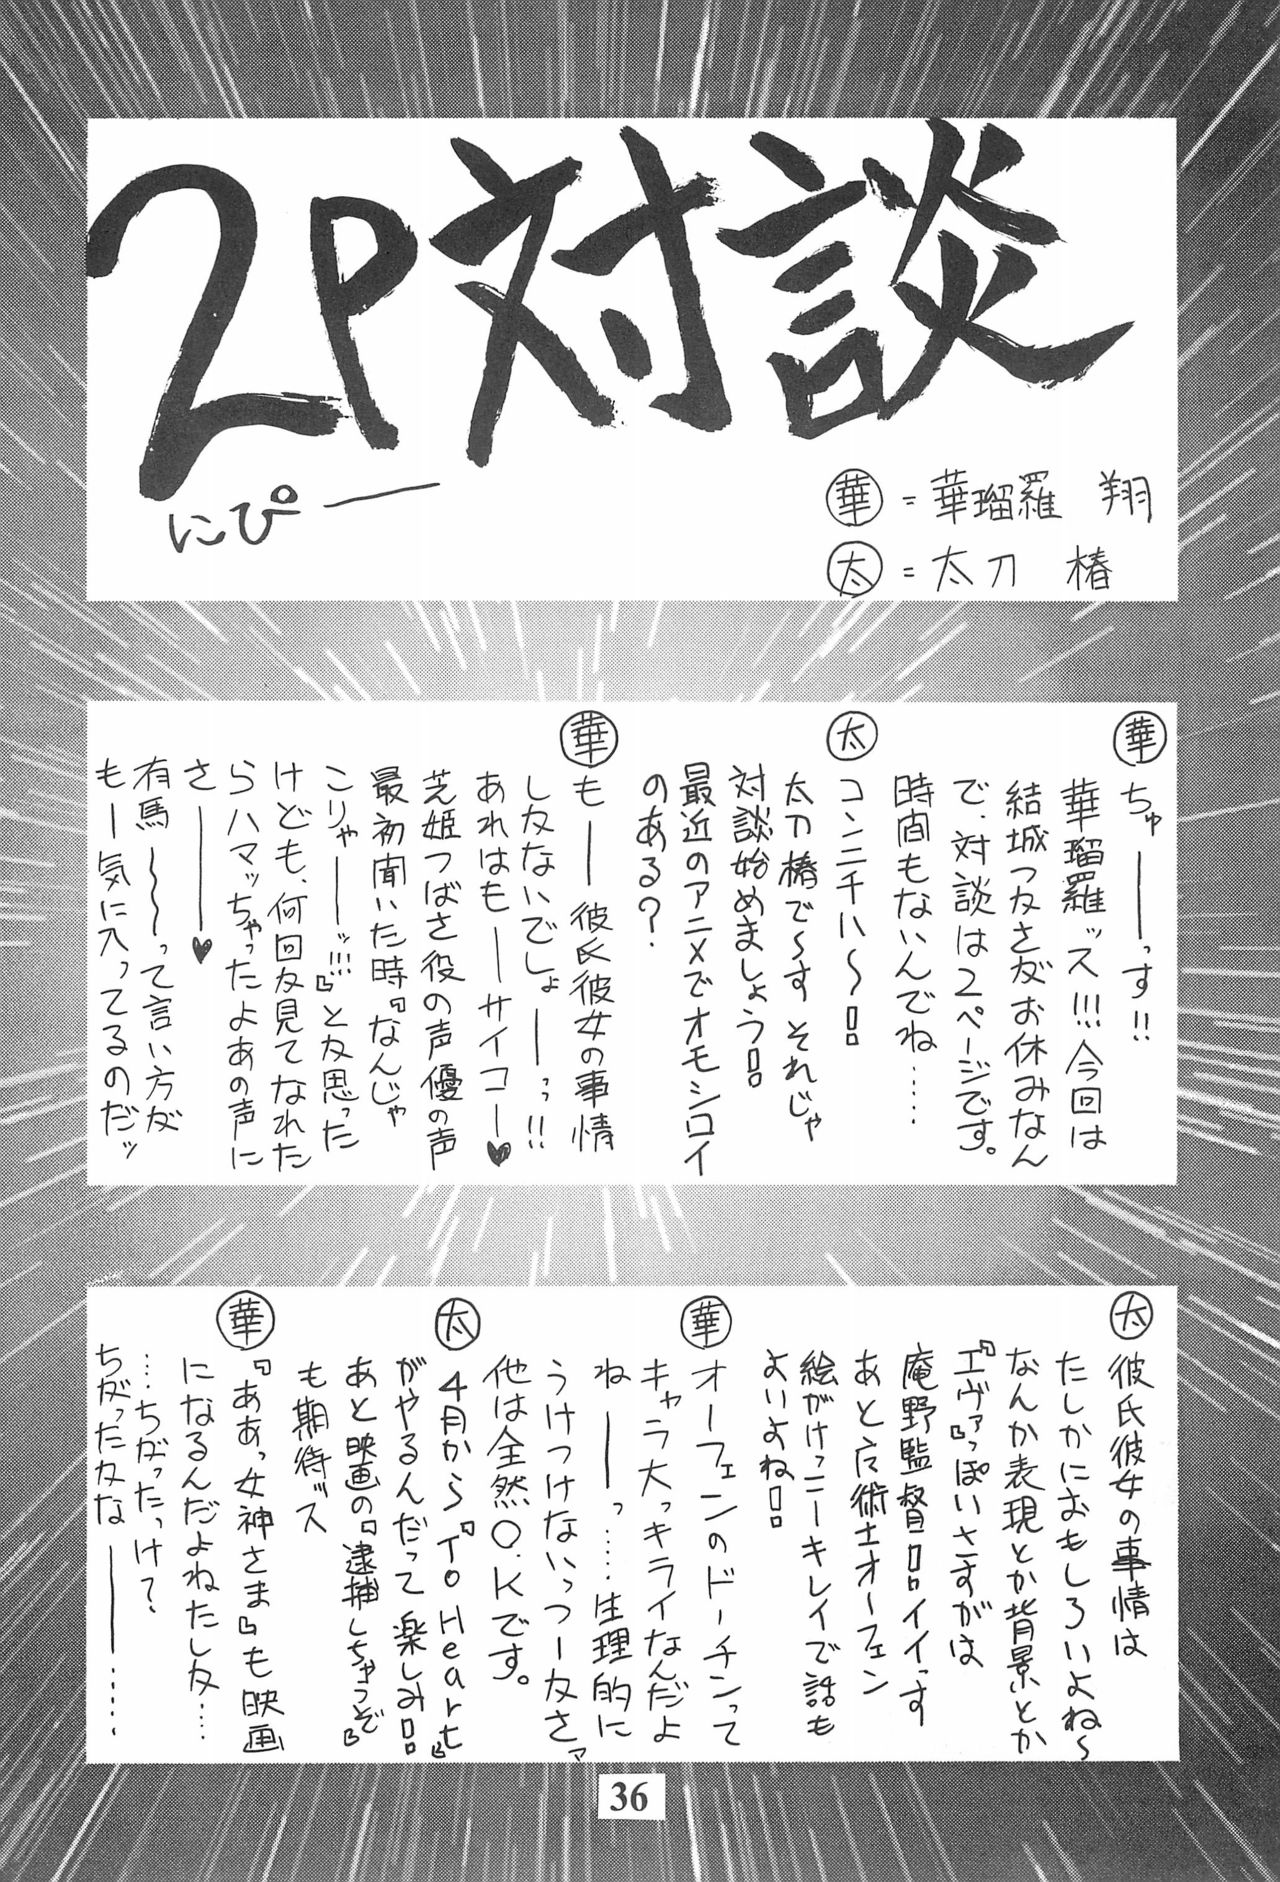 2P対談
にぴー
華=華瑠羅 翔
太=太刀 椿
華
ちゅーーっす!!
華瑠羅ッス!!!今回は
結城つかさもお休みなん
で、対談は2ページです。
時間もないんでね……
太
コンニチハ〜!
太刀椿で〜す それじゃ
対談始めましょう!
最近のアニメでオモシロイ
のある?
華
もーー 彼氏彼女の事情
しかないでしょーーっ!!
あれはもーーサイコー♥
芝姫つばさ役の声優の声
最初聞いた時『なんじゃ
こりゃーーッ!!!』とか思った
けども、何回か見てなれた
らハマッちゃったよあの声に
さーーー♥
有馬〜〜〜って言い方が
もー気に入ってるのだッ
太
彼氏彼女の事情は
たしかにおもしろいよね〜
なんか表現とか背景とか
『エヴァ』っぽいさすがは
庵野監督!!イイっす
あと魔術士オーフェン
絵がけっこーキレイで話も
よいよね!
華
オーフェンのドーチンって
キャラ大っキライなんだよ
ねーーっ……生理的に
うけつけないっつーかさァ
他は全然O.Kです。
太
4月から『To Heart』
がやるんだって楽しみ!!
あと映画の『逮捕しちゃうぞ』
も期待ッス
華
『ああっ女神さま』も映画
になるんだよねたしか…
…ちがったっけ?
ちがったかなーーー……
36